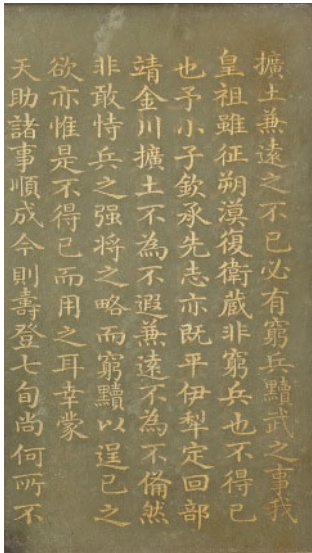 擴土兼遠之不已必有窮兵黷武之事我
皇祖雖征朔漠復衛蔵非窮兵也不得已
也予小子欽承先志亦既平伊犁定回部
靖金川擴土不為不遐兼遠不為不僃然
非敢恃兵之强将之略而窮黷以逞已之
欲亦惟是不得已而用之耳幸蒙
天助諸事順成今則壽登七旬尚何所不